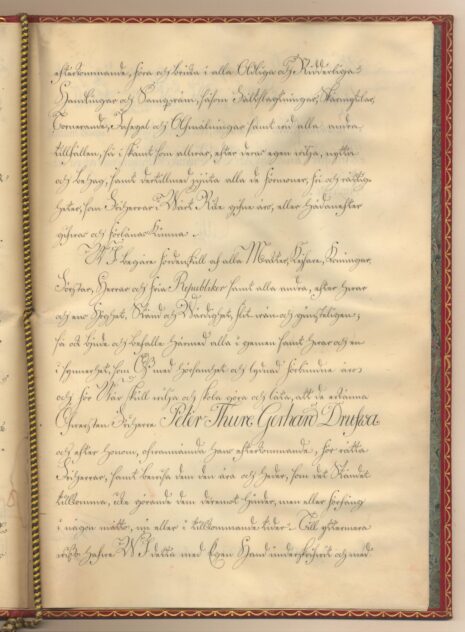 efterkommande, föra och bruka i alla Adeliga och Ridderliga
Handlingar och Samqväm, såsom Fältslagtningar, Stormningar,
Tornerande, Insegel och Afmålningar samt vid alla andra
tillfällen, så i Skämt som allvar, efter deras egen vilja, nytta
och behag, samt dertillmed njuta alla de förmoner, fri och rättig-
heter, som Friherrar i Wårt Rike gifne äro, eller hädanefter
gifvas och förlänas kunna.
WI begäre fördenskull af alla Magter, Kejsare, Konungar,
Förstar, Herrar och fria Republiker samt alla andra, efter hvars
och ens Höghet, Stånd och Wärdighet, flit- vän- och gunsteligen;
så ock bjude och befalle Härmed alla i gemen samt hvar och en
i synnerhet, som Oss med hörsamhet och lydnad förbundne äro
och för Wår skull vilja och skola göra och låta, att de erkänna
Öfwersten Friherre Peter Thure Gerhard Drufva
och efter honom, ofvannämnda hans efterkommande, för rätta
Friherrar, samt bevisa dem den ära och heder, som det Ståndet
tillkomma, icke görande dem deremot hinder, men eller förfång
i någon måtto, nu eller i tillkommande tider. Till yttermera
visso hafve WI detta med Egen Hand underskrifvit och med